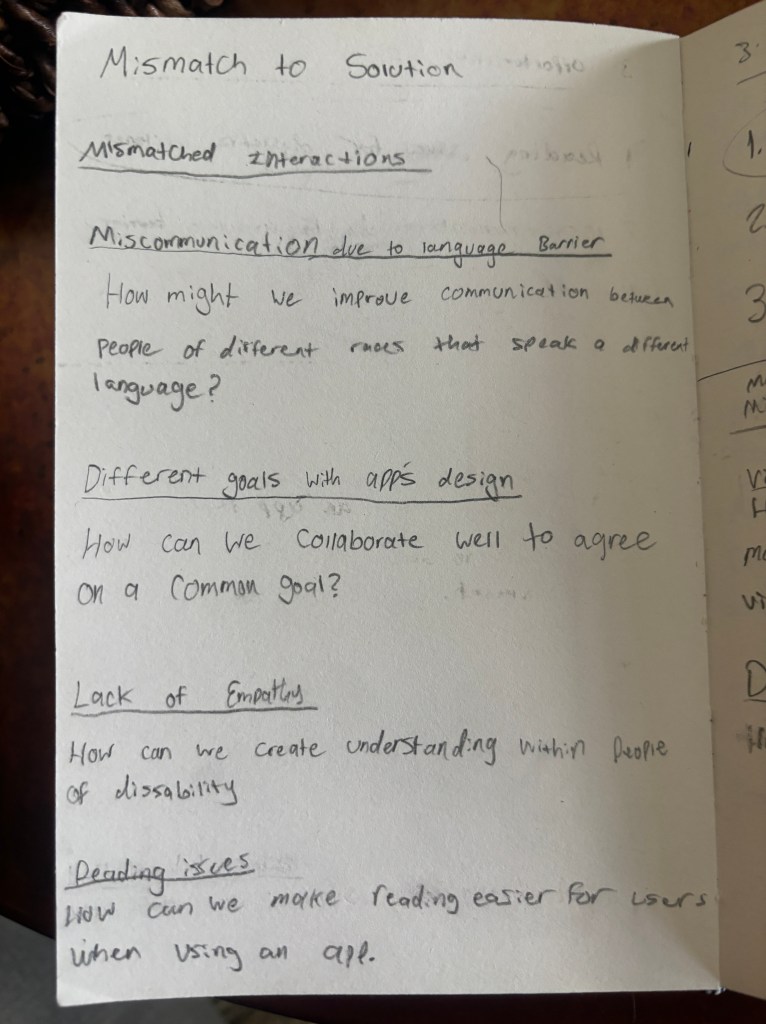 Mismatch to Solution
Mismatched Interactions
Miscommunication due to language Barrier
How might we improve communication between
people of different races that speak a different
language?
Different goals with app's design
How can we collaborate well to agree
on a common goal?
Lack of Empathy
How can we create understanding within people
of dissability
Reading issues
How can we make reading easier for users
when using an app.
3
1.
2
3